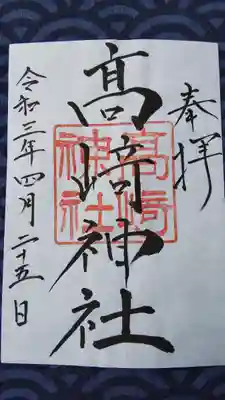 奉拝
髙﨑神社
髙﨑神社
令和三年四月二十五日